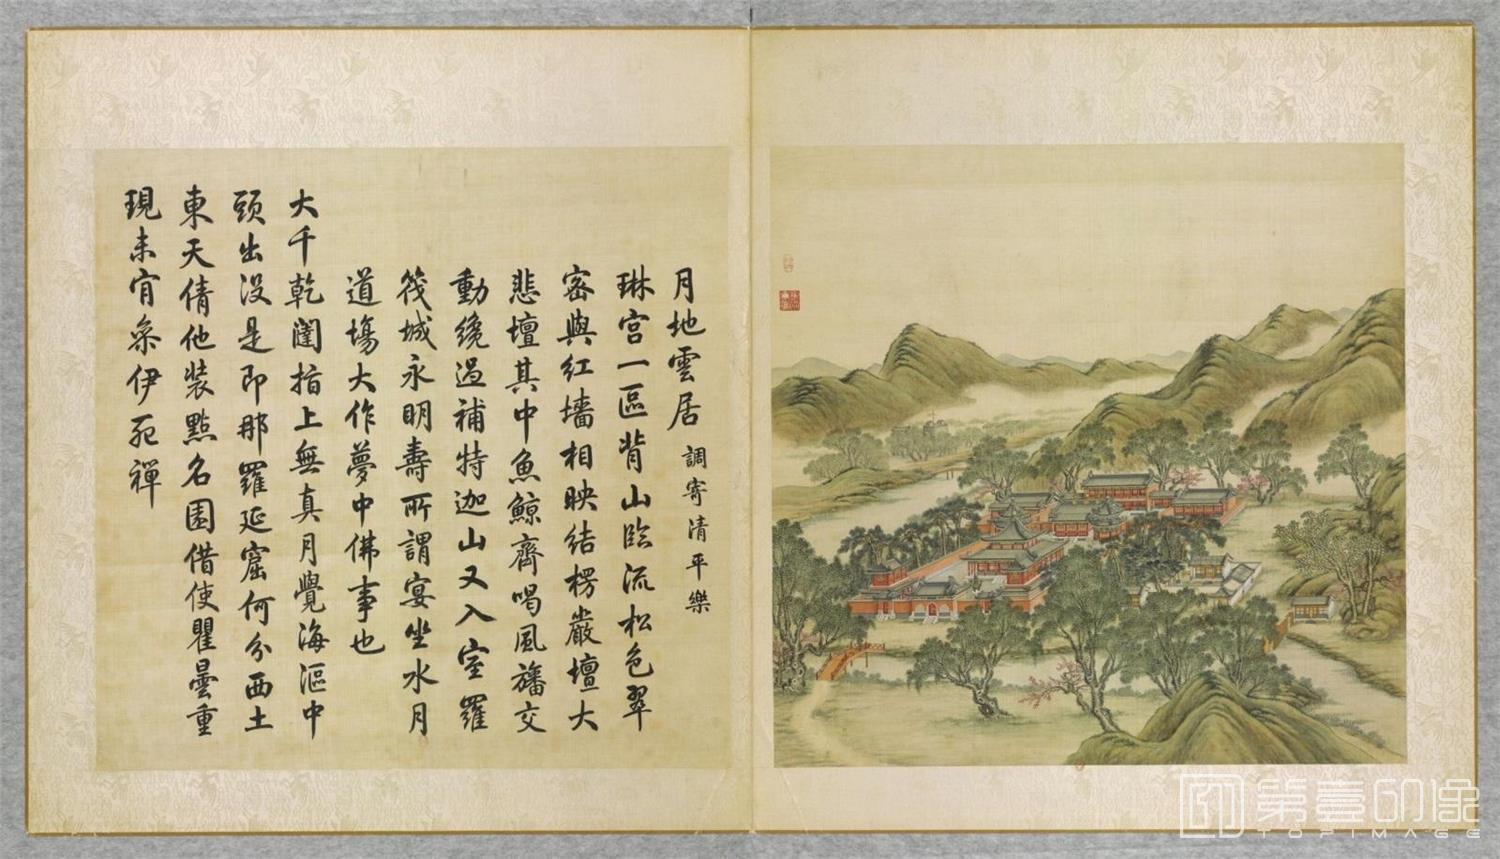 月地雲居 調寄清平樂
琳宮一區背山臨流松色翠
密與紅墻相映結楞嚴壇大
悲壇其中魚鯨齊喝風旛交
動纔過補特迦山又入室羅
筏城永明壽所謂宴坐水月
道場大作夢中佛事也
大千乾闥指上無真月覺海漚中
頭出沒是即那羅延窟何分西土
東天倩他裝點名園借使瞿曇重
現未肯參伊死禪
第壹印像
TOPIMAGE